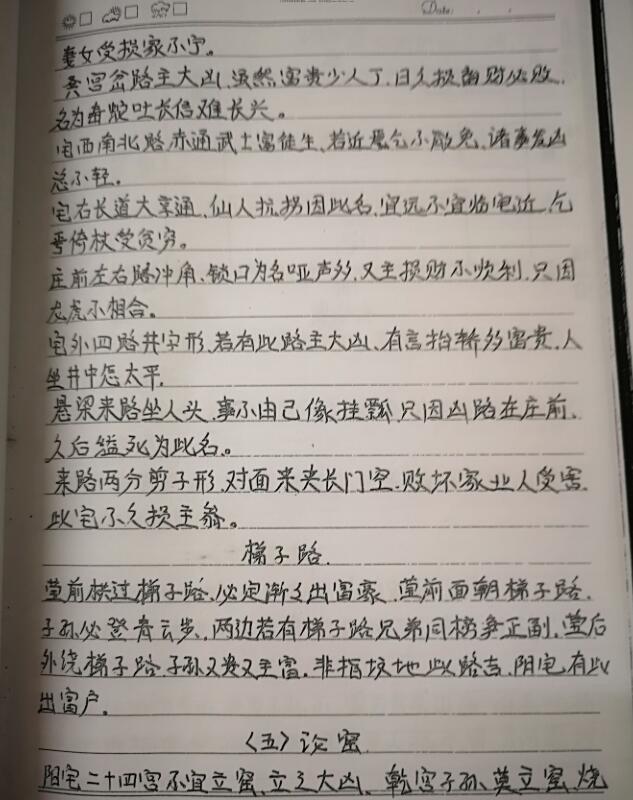 Date:
妻女受损家不宁。
宫岔路主大凶，虽然富贵少人丁，日久损散财必败，
名为毒蛇吐长信难长兴。
宅西南北路赤通武士富徒生，若近不散免，诸事发凶
总不轻。
宅右长道大享通，仙人抗拐因此名，宜远不宜临宅近，
倚杖受贫穷。
庄前左右路冲角，锁口为名哑声多，又主损财不顺利，只因
龙虎不相合。
宅外四路井字形，若有此路主大凶，有言抬轿多富贵，人
坐井中怎太平，
悬梁来路坐人头，事不由己像挂瓢，只因凶路在庄前，
久后缢死为此名。
来路两分剪子形，对面来夹长门空，败坏家业人受害，
此宅不久损主翁。
梯子路
茔前横过梯子路，必定渐之出富豪，茔前面朝梯子路，
子孙必登青云步，两边若有梯子路兄弟同榜争正副，茔后
外绕梯子路，子孙又贵又主富，非指坟地此路吉，阳宅有此
出富户。
〈五〉论窑
阳宅二十四宫不宜立窑，立之大凶，乾宫子孙莫立窑，烧